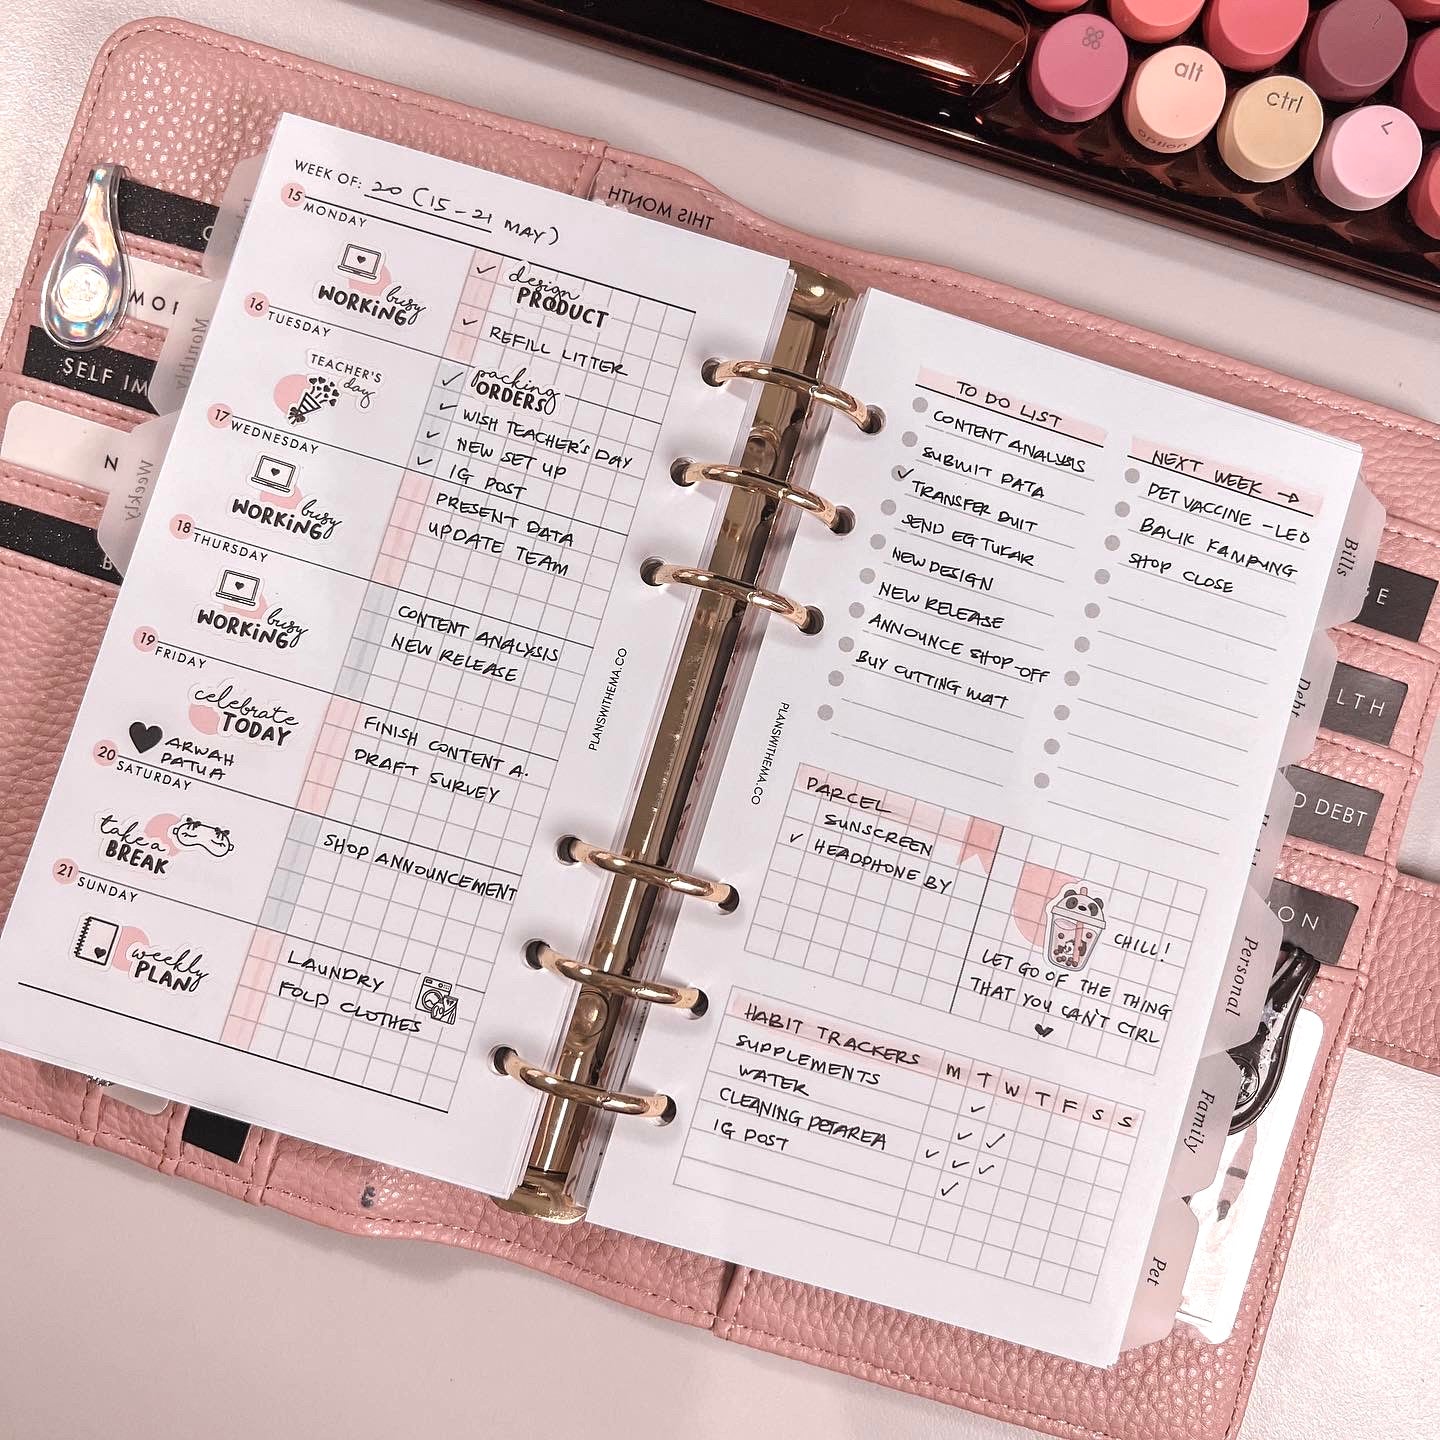 WEEK OF: 20 (15 - 21 MAY)
15 MONDAY
busy
WORKING
✓ design
PRODUCT
✓ REFILL LITTER
16 TUESDAY
TEACHER'S
day
✓ packing
ORDERS
✓ WISH TEACHER'S DAY
✓ NEW SET UP
✓ IG POST
17 WEDNESDAY
busy
WORKING
PRESENT DATA
UPDATE TEAM
18 THURSDAY
busy
WORKING
CONTENT ANALYSIS
NEW RELEASE
19 FRIDAY
celebrate
TODAY
ARWAH
PATUA
FINISH CONTENT A.
DRAFT SURVEY
20 SATURDAY
take a
BREAK
SHOP ANNOUNCEMENT
21 SUNDAY
weekly
PLAN
LAUNDRY
FOLD CLOTHES
PLANSWITHEMA.CO
THIS MONTH
TO DO LIST
CONTENT ANALYSIS
SUBMIT DATA
✓ TRANSFER DUIT
SEND EG TUKAR
NEW DESIGN
NEW RELEASE
ANNOUNCE SHOP-OFF
BUY CUTTING MAT
NEXT WEEK →
PET VACCINE - LEO
BALIK KAMPUNG
SHOP CLOSE
PLANSWITHEMA.CO
PARCEL
SUNSCREEN
✓ HEADPHONE BY
CHILL!
LET GO OF THE THING
THAT YOU CAN'T CTRL
HABIT TRACKERS M T W T F S S
SUPPLEMENTS ✓
WATER ✓ ✓
CLEANING PETAREA ✓ ✓ ✓
IG POST ✓
Monthly
Weekly
SELF IM
Bills
Debt
Personal
Family
Pet
LTH
DEBT
ON
alt
option
ctrl
<